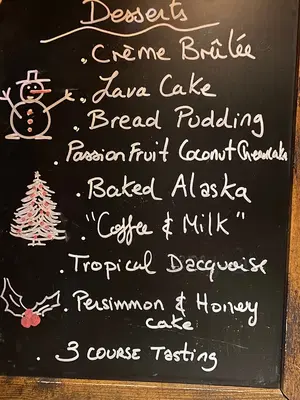 Desserts
. Crème Brûlée
. Lava Cake
. Bread Pudding
. Passion Fruit Coconut Cheesecake
. Baked Alaska
. "Coffee & Milk"
. Tropical Dacquoise
. Persimmon & Honey
cake
. 3 course Tasting